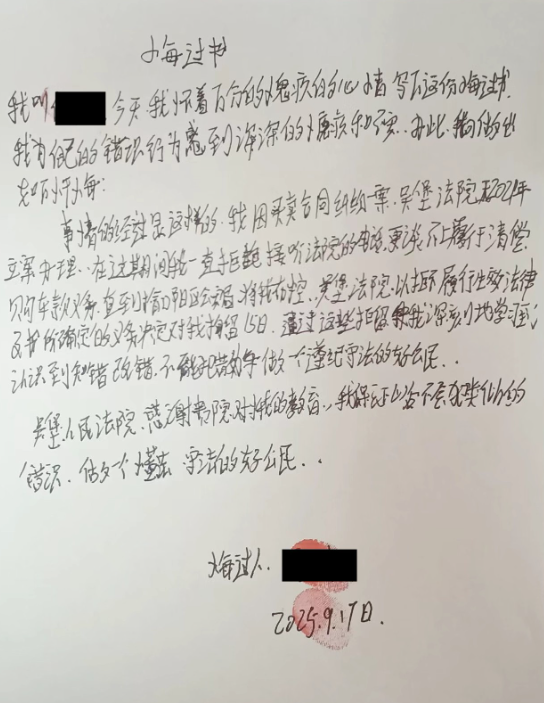 悔过书
我叫 今天我怀着百分的愧疚的心情写下这份悔过书,
我为自己的错误行为感到深深的愧疚和 . 在此,我做出
忏悔:
事情的经过是这样的.我因买卖合同纠纷一案.吴堡法院于2021年
立案办理.在这期间我一直拒绝接听法院的电话,更谈不上履行清偿
购车款义务.直到榆阳区公安局将我布控.吴堡法院以拒不履行生效法律
文书所确定的义务决定对我拘留15日.通过这些拘留 我深刻地学习到
认识到知错改错.不能犯错 做一个遵纪守法的好公民..
吴堡人民法院.感谢贵院对我的教育,我保证以后不会犯类似的
错误.做一个懂法 守法的好公民..
悔过人.
2025.9.17日.